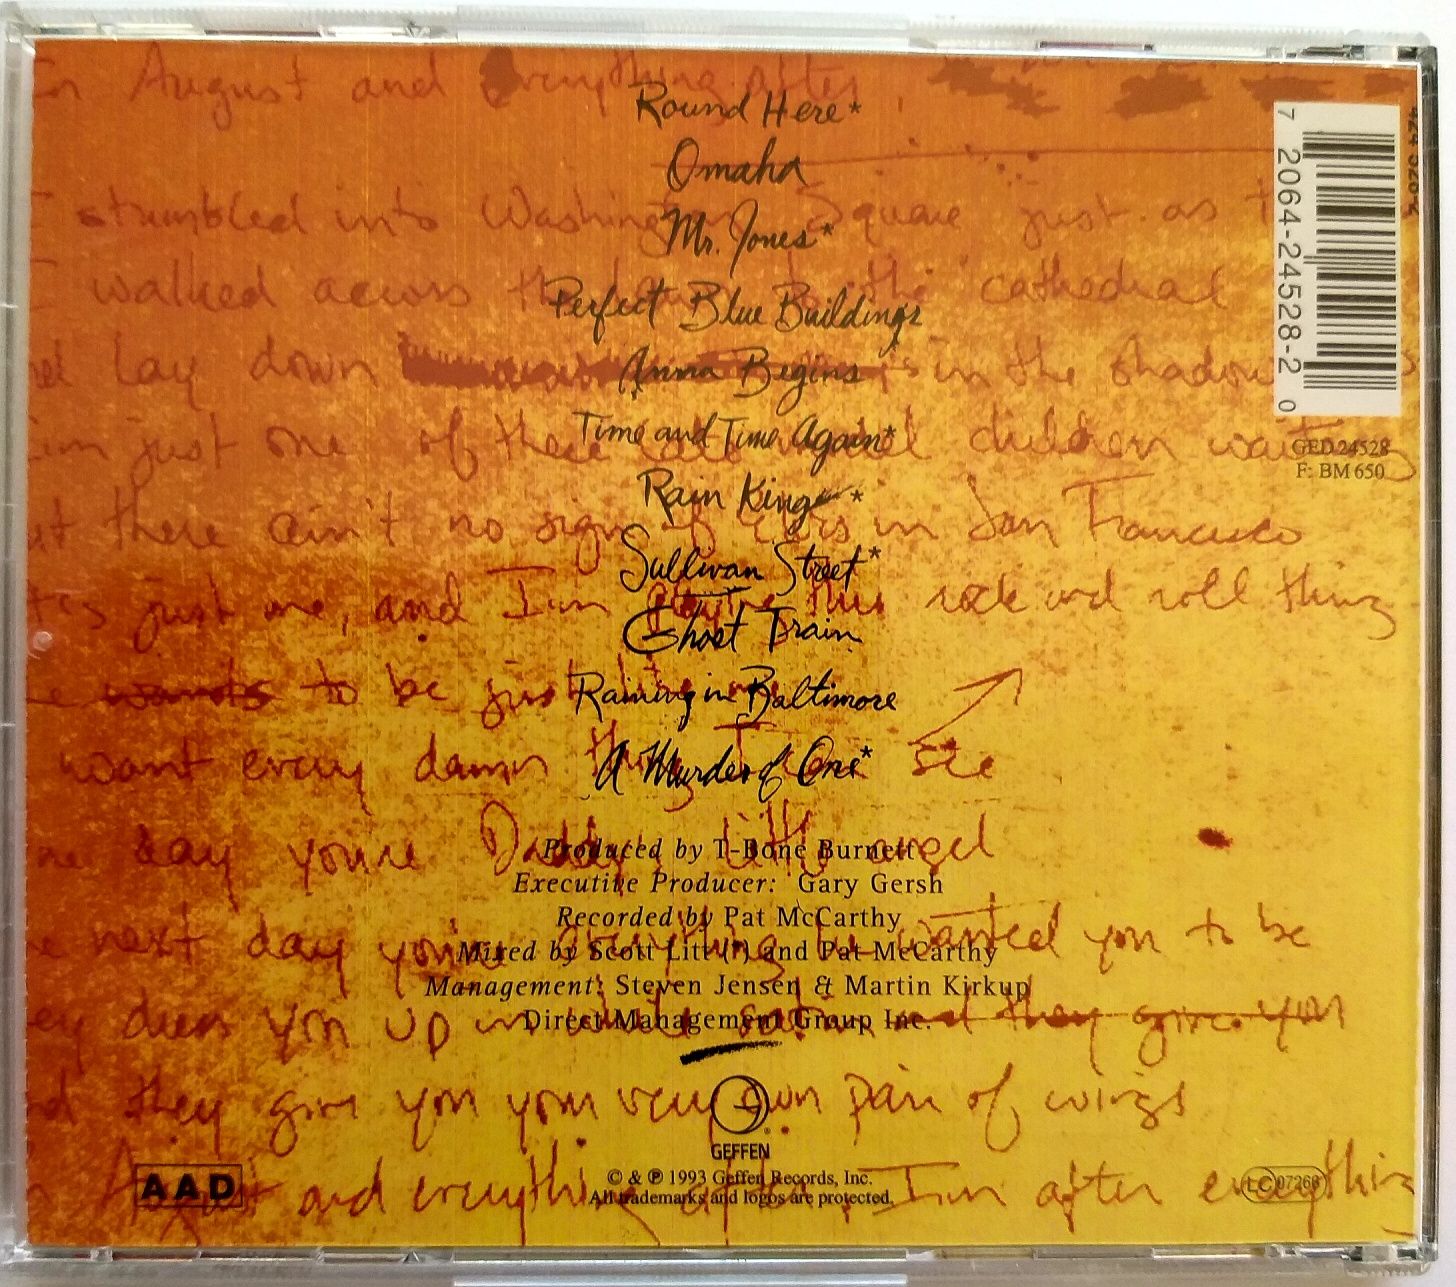 In August and Everything After,
Round Here*
Omaha
I stumbled into Washington Square just as t
Mr. Jones*
I walked across the to the cathedral
Perfect Blue Buildings
lay down in the shadow s
Anna Begins
I'm just one of these children waiting
Time and Time Again*
Rain King *
there ain't no sign of in San Francisco
Sullivan Street*
just me, and I'm this rock and roll thing
Ghost Train
wants to be just
Raining in Baltimore
want every damn thing I see
A Murder of One*
day you're Daddy's little angel
Produced by T-Bone Burnett
Executive Producer: Gary Gersh
Recorded by Pat McCarthy
next day you're everything he wanted you to be
Mixed by Scott Litt (*) and Pat McCarthy
Management: Steven Jensen & Martin Kirkup
Direct Management Group Inc.
dress you up in white satin and they give you
they give you your very own pair of wings
GEFFEN
© & ℗ 1993 Geffen Records, Inc.
All trademarks and logos are protected.
August and everything after, I'm after everything
AAD
LC 07266
7 2064-24528-2 0
GED 24528
F: BM 650